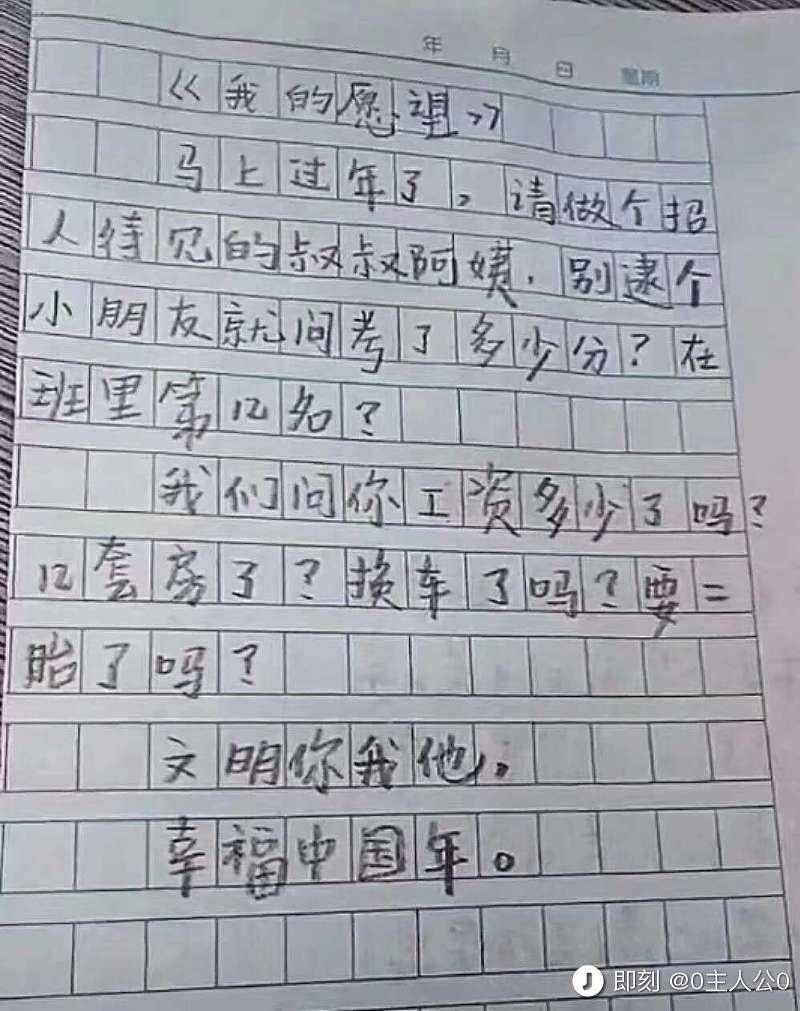 年 月 日 星期
《我的愿望》
马上过年了，请做个招
人待见的叔叔阿姨，别逮个
小朋友就问考了多少分？在
班里第几名？
我们问你工资多少了吗？
几套房了？换车了吗？要二
胎了吗？
文明你我他，
幸福中国年。
即刻 @0主人公0